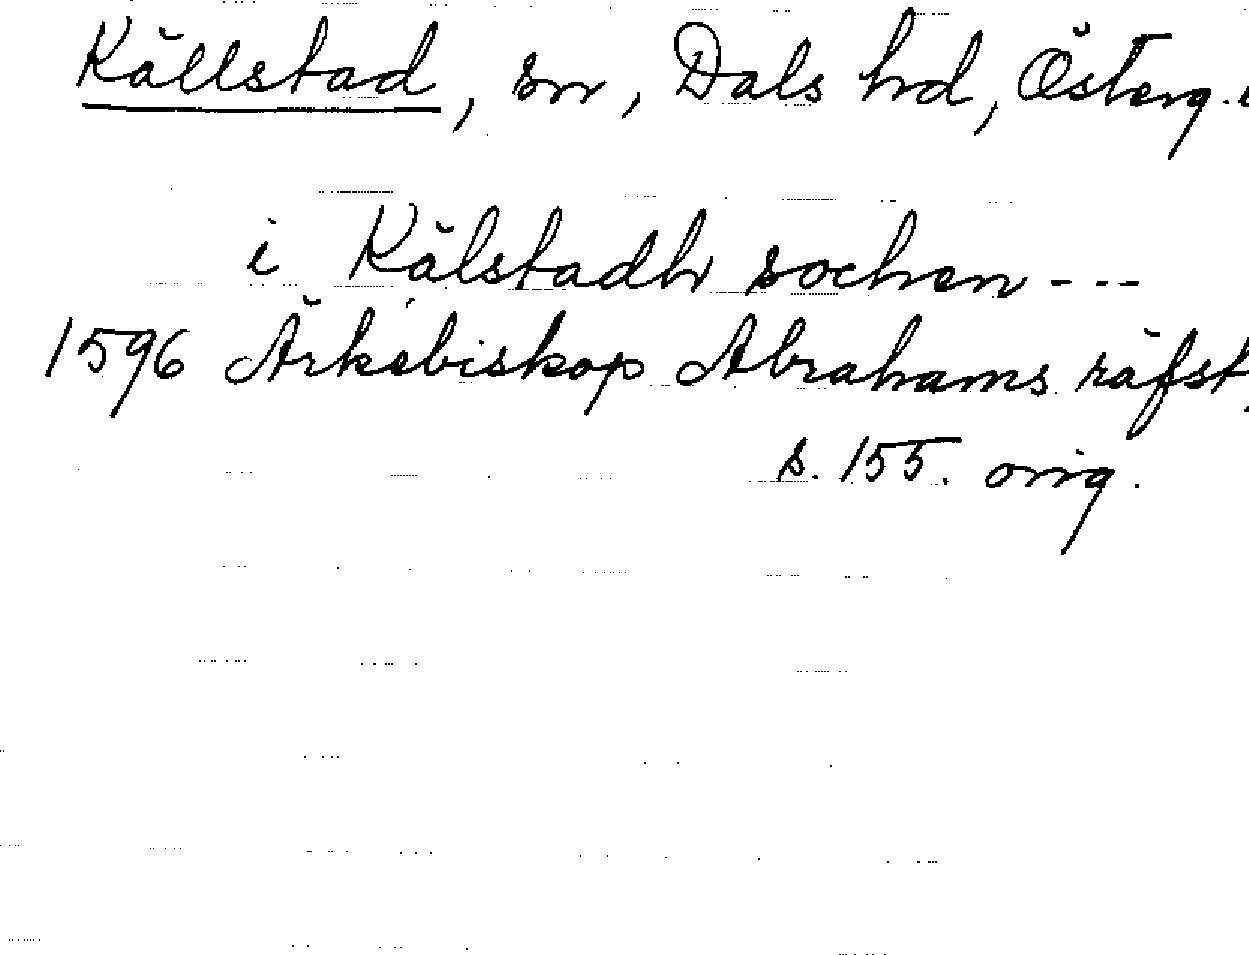 Källstad, sn, Dals hd, Österg.
i Kälstadh sochen ---
1596 Ärkebiskop Abrahams räfst,
s. 155. orig.